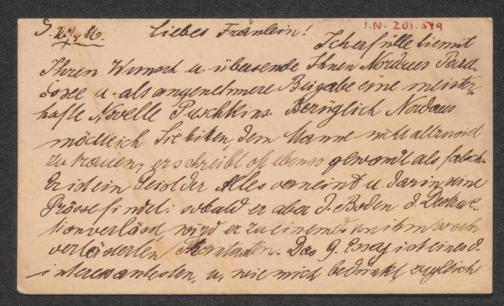 I.N. 201.549
Liebes Fräulein!
Ich erfülle hiemit
Ihren Wunsch u. übersende Ihnen Nordaus Para
doxe u. als angenehmere Beigabe eine meister-
hafte Novelle Puschkins. Bezüglich Nordaus
möchte ich Sie bitten, dem Manne nicht allzuviel
zu trauen, er schreibt oft ebenso gewandt als falsch.
Er ist ein Geist der Alles verneint u. darin seine
Grösse findet: sobald er aber d. Boden d.
verlässt wird er zu einem von ihm
Das 9. Essay ist eines d.
interessantesten, u. wie mich bedünkt zugleich